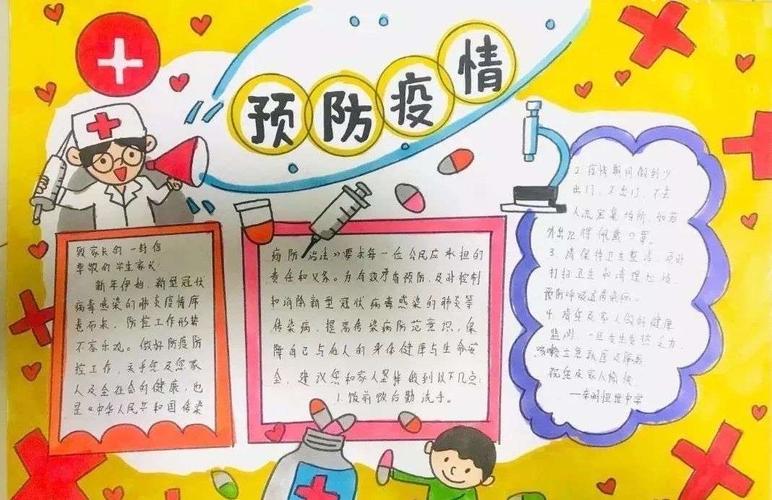 预防疫情
致家长的一封信
尊敬的学生家长
新年伊始,新型冠状
病毒感染的肺炎疫情席
卷而来,防控工作形势
不容乐观。做好防疫防
控工作,关乎您及您家
人及全社会的健康,也
是《中华人民共和国传染
病防治法》要求每一位公民应承担的
责任和义务。为有效预防,及时控制
和消除新型冠状病毒感染的肺炎等
传染病,提高传染病防范意识,保
障自己与他人的身体健康与生命安
全,建议您和家人坚持做到以下几点:
1.饭前饭后勤洗手。
2.疫情期间做到少
出门,不出门,不去
人流密集场所,如若
外出记得佩戴口罩。
3.请保持卫生整洁,
打扫卫生和清理垃圾,
预防呼吸道传染病。
4.做好您及家人的健康
监测,一旦发生发热乏力
咳嗽
祝您及家人愉快